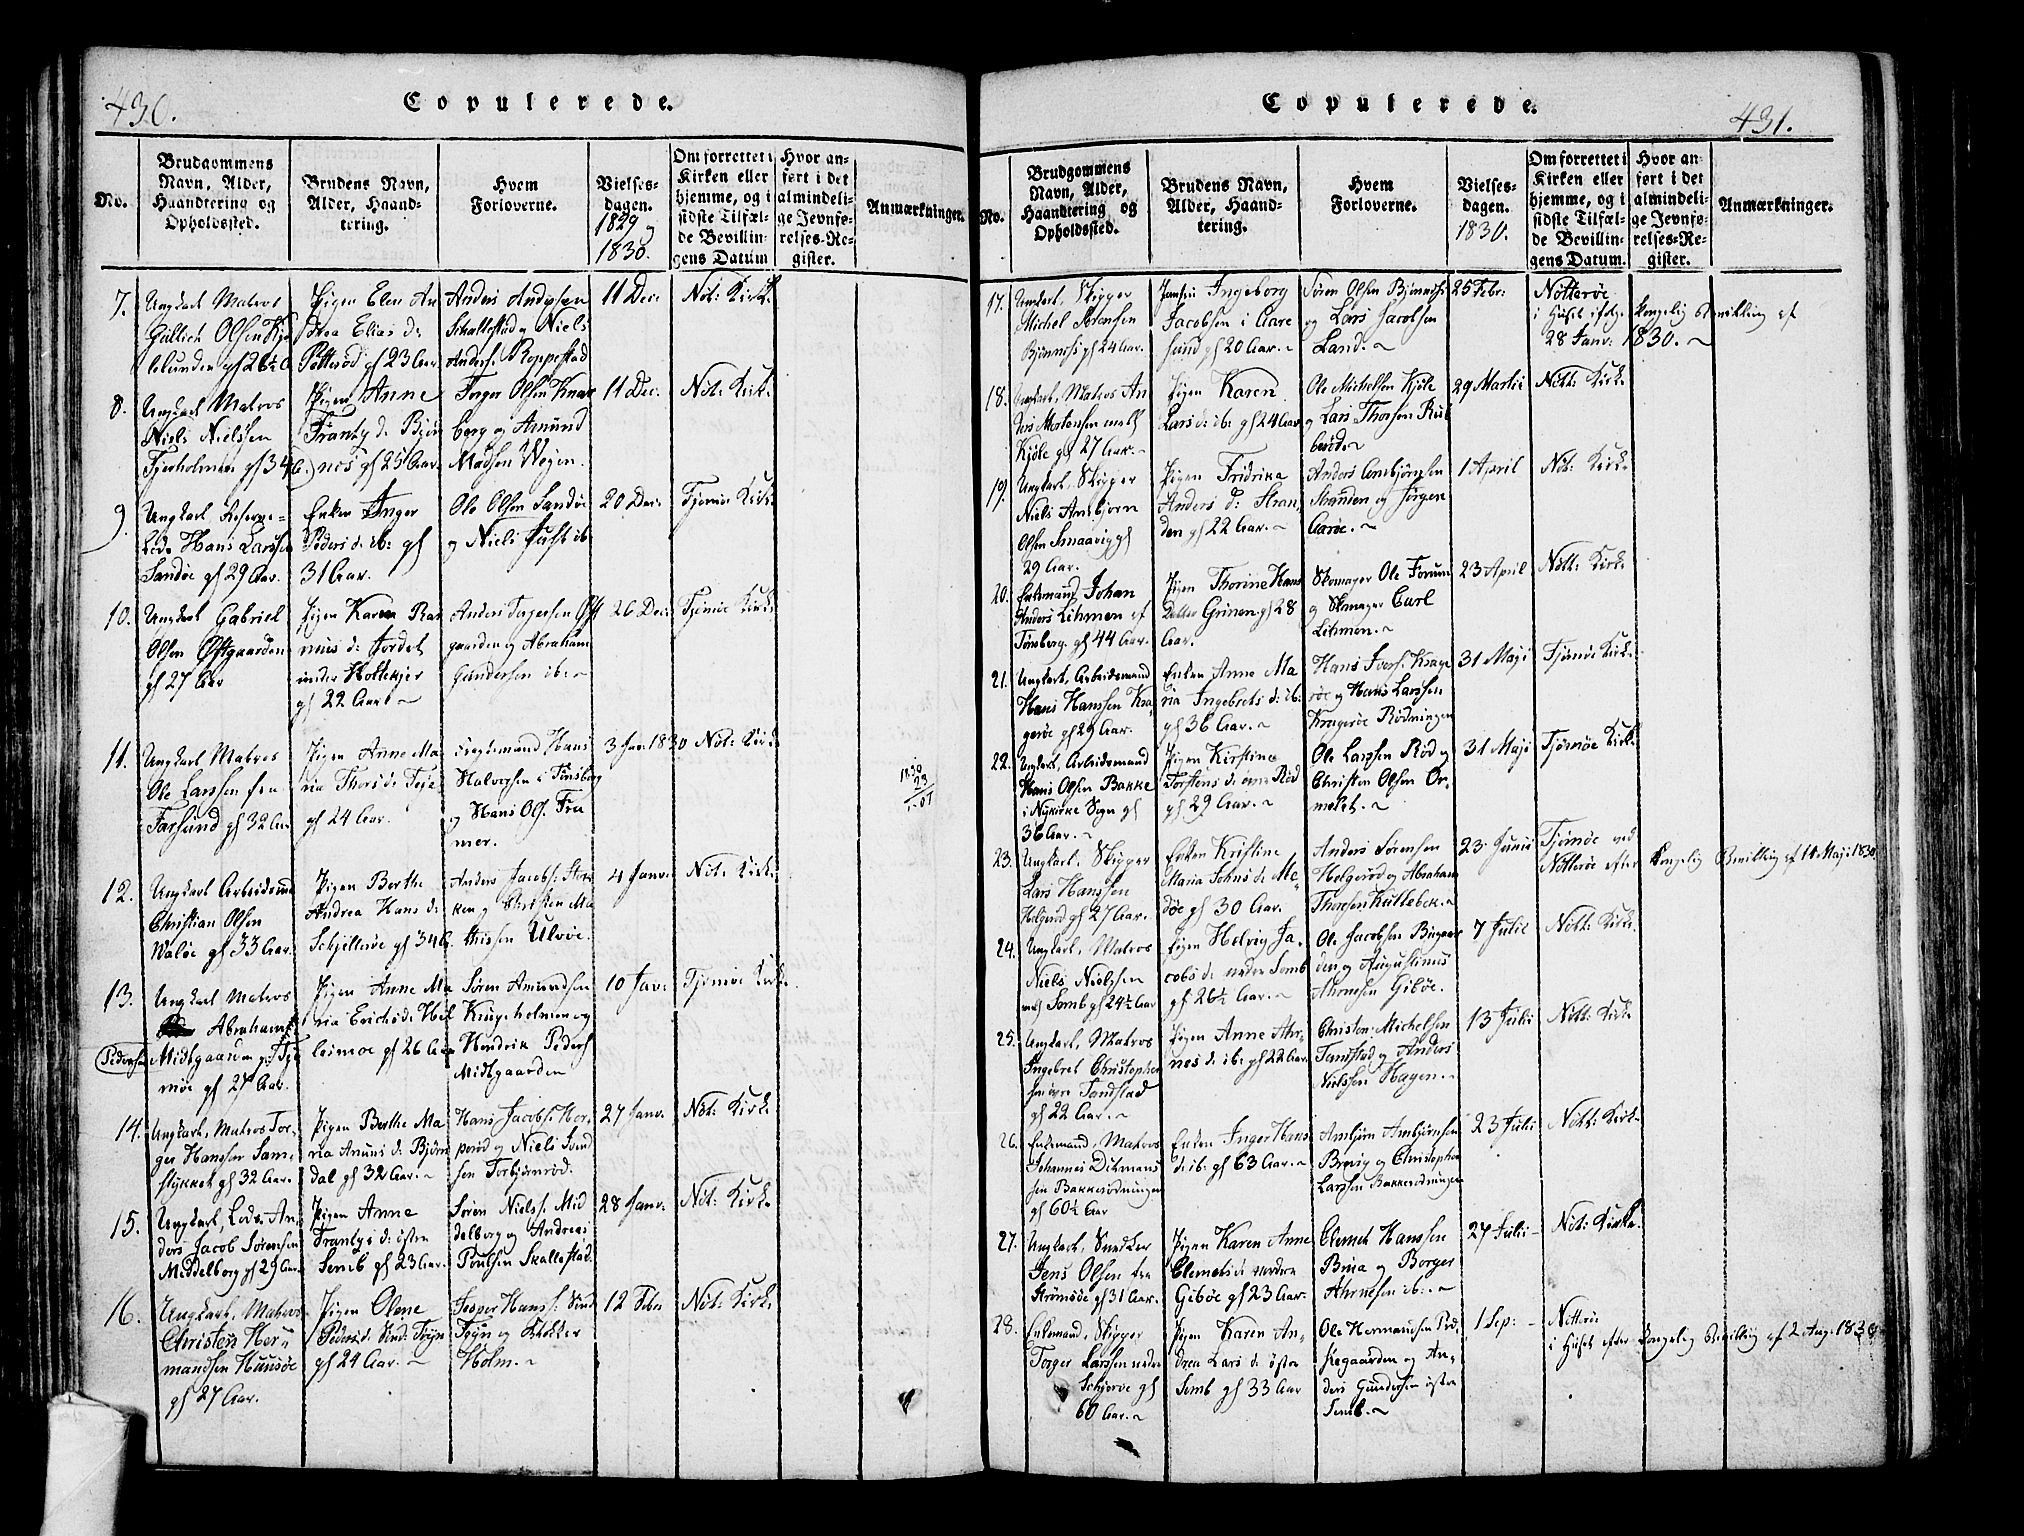 430.
Copulerede.
No.
Brudgommens
Navn, Alder,
Haandtering og
Opholdssted.
Brudens Navn,
Alder, Haand-
tering.
Hvem
Forloverne.
Vielses-
dagen.
1829 og
1830.
Om forrettet i
Kirken eller
hjemme, og i
sidste Tilfæl-
de Bevillin-
gens Datum
Hvor an-
ført i det
almindeli-
ge Jevnfø-
relses-Re-
gister.
Anmærkninger.
7.
Ungkarl Matros
Gullich Olsen
Pigen Elen An
drea Elias d:
Potterød gl 23 Aar.
Anders Andersen
Schallestad og Niels
Anders. Roppestad
11 Dec:
Nöt: Kirk:
8.
Ungkarl Matros
Niels Nielssen
Tjerholmen gl 34
Pigen Anne
Frants d: Bjön
nes gl 25 Aar.
Torger Olsen Knar
berg og Amund
Madsen Wegen.
11 Dec.
Nöt: Kirk:
9.
Ungkarl Reserve-
Lods Hans Larssen
Sandöe gl 29 Aar.
Enken Inger
Peders d: ib: gl
31 Aar.
Ole Olsen Sandöe
og Niels ib:
20 Dec:
Tjömöe Kirk:
10.
Ungkarl Gabriel
Olsen Østgaarden
gl 27 Aar
Pigen Karen Ras
mus d: Jordet
under Holtekjer
gl 22 Aar ~
Anders Torgersen Øst
gaarden og Abraham
Gundersen ib: ~
26 Dec:
Tjömöe Kirk:
11.
Ungkarl Matros
Ole Larssen fra
Farsund gl 32 Aar
Pigen Anne Ma-
ria Thors d: Teje
gl 24 Aar.
Hans
Halvorsen i Tönsberg
og Hans Ols. Fra
mer.
3 Jan: 1830
Nöt: Kirk:
1830
23
12.
Ungkarl Arbeidsmd
Christian Olsen
Walöe gl 33 Aar.
Pigen Berthe
Andrea Hans d:
Schjelleröe gl 34
Anders Jacobs:
ken og Christen Ma
thissen Ulvöe.
4 Janr.
Nöt: Kirk:
13.
Ungkarl Matros
Abraham
Pedersen
Midtgaarden pa Tjö
möe gl 27 Aar.
Pigen Anne Ma
ria Erichs d: Hel
leimoe gl 26 Aar
Sören Amundsen
Krugeholmen og
Hendrik Peders:
Midtgaarden
10 Jan:
Tjömöe Kirk:
14.
Ungkarl, Matros Tor-
ger Hanssen Sam-
stykket gl 32 Aar.
Pigen Berthe Ma
ria Anuns d: Björn
dal gl 32 Aar. ~
Hans Jacobs: Her-
peröd og Niels
sen Torbjörnröd.
27 Janr.
Nöt: Kirk:
15.
Ungkarl, Lods An-
ders Jacob Sörensen
Middelborg gl 29 Aar.
Pigen Anne
Frants d: östre
Semb gl 23 Aar.
Sören Niels: Mid
delborg og Andreas
Poulsen Skallestad.
28 Janr.
Nöt: Kirk:
16.
Ungkarl, Matros
Christen Her-
mandsen Huusöe
gl 27 Aar.
Pigen Olene
Peders d: Sind: Tojn
gl 24 Aar. ~
Jesper Hans s: Sind
Tojn og
Holm. ~
12 Febr
Nöt: Kirk:
Copulerede.
431.
No.
Brudgommens
Navn, Alder,
Haandtering og
Opholdssted.
Brudens Navn,
Alder, Haand-
tering.
Hvem
Forloverne.
Vielses-
dagen.
1830.
Om forrettet i
Kirken eller
hjemme, og i
sidste Tilfæl-
de Bevillin-
gens Datum.
Hvor an-
ført i det
almindeli-
ge Jevnfø-
relses-Re-
gister.
Anmærkninger.
17.
Ungkarl, Skipper
Michel Sörensen
Björnnes gl 24 Aar.
Ingeborg
Jacobsen i Aare
sund gl 20 Aar. ~
Sören Olsen Björnnes
og Lars Jacobsen
Land. ~
25 Febr:
Nötteröe
i Huset ifölge kongelig Bevilling af
28 Janr: 1830. ~
18.
Ungkarl, Matros An
ders Mortensen
Kjöle gl 27 Aar. ~
Pigen Karen
Lars d: ib: gl 24 Aar
Ole Michelsen Kjöle
og Lars Thorsen Rub
beröd ~
29 Martii
Nött: Kirk:
19.
Ungkarl, Skipper
Niels Arnbjörn
Olsen Smaavig gl
29 Aar.
Pigen Fridrika
Anders d: Stran-
den gl 22 Aar. ~
Anders Arnbjörnsen
Stranden og Jörgen
Aaröe. ~
1 April
Nöt: Kirk:
20.
Enkemand Johan
Anders Lihmen af
Tönsberg. gl 44 Aar.
Pigen Thorine Hans
Datter Grinen gl 28
Aar.
Skomager Ole Forum
og Skomager Carl
Lihmen. ~
23 April
Nött: Kirk:
21.
Ungkarl, Arbeidsmand
Hans Hanssen Kra-
geröe gl 29 Aar.
Enken Anne Ma
ria Ingebrets d: ib:
gl 36 Aar. ~
Hans Ivers. Krage
röe og Hans Larssen
Krageröe Rödningen
31 Maji
Tjömöe Kirk:
22.
Ungkarl, Arbeidsmand
Hans Olsen Bakke
i Nykirke Sogn gl
36 Aar. ~
Pigen Kirstine
Torstens d: Röd
gl 29 Aar. ~
Ole Larssen Röd og
Christen Olsen Or-
melet. ~
31 Maji
Tjömöe Kirk:
23.
Ungkarl, Skipper
Lars Hanssen
Holgeröd gl 27 Aar.
Enken Kristine
Maria Johns d: Me-
döe gl 30 Aar.
Anders Sörensen
Helgeröd og Abraham
Thoresen Kullebek. ~
23 Junii
Tjömöe ved
Nötteröe efter kongelig Bevilling af 14 Maji 1830
24.
Ungkarl, Matros
Niels Nielssen
Semb gl 24½ Aar
Pigen Helvig Ja-
cobs d: nedre Semb
gl 26½ Aar. ~
Ole Jacobsen Bugaar
den og Augustinus
Ahrnesen Giböe.
7 Julii
Nött: Kirk:
25.
Ungkarl, Matros
Ingebret Christopher
sen övre Tandstad
gl 22 Aar. ~
Pigen Anne Ahr-
nes d: ib: gl 22 Aar.
Christen Michelsen
Tandstad og Anders
Nielssen Hagen. ~
13 Julii
Nött: Kirk:
26.
Enkemand, Matros
Johannes Dithmans
sen Bakkerödningen
gl 60½ Aar
Enken Inger Hans
d: ib: gl 63 Aar. ~
Arnbjörn Arnbjörnsen
Brevig og Christopher
Larssen Bakkerödningen
23 Julii
Nött: Kirk:
27.
Ungkarl, Snedker
Jens Olsen fra
Strömsöe gl 31 Aar.
Pigen Karen Anne
Clemets d: nordre
Giböe gl 23 Aar.
Clemet Hanssen
Brua og Borger
Ahrnesen ib: ~
27 Julii ~
Nöt: Kirke.
28.
Enkemand, Skipper
Torger Larssen nedre
Schjerve gl
60 Aar. ~
Pigen Karen An-
drea Lars d: östre
Semb gl 33 Aar
Ole Hermandsen Præ
stegaarden og An-
ders Gundersen östre
Semb. ~
1 Sep: ~
Nötteröe
i Huset efter kongelig Bevilling af 2 Aug. 1830